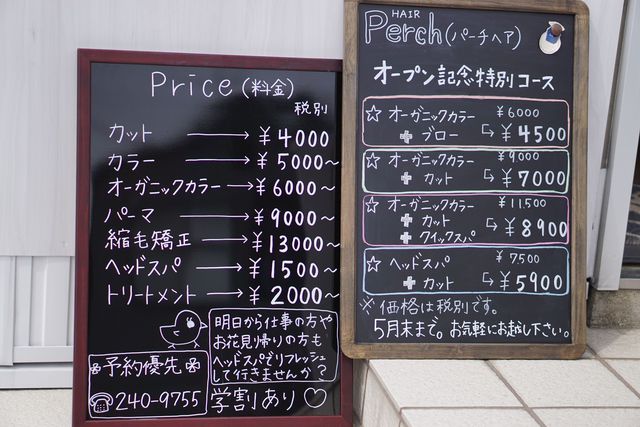 Price(料金)
税別
カット → ¥4000
カラー → ¥5000〜
オーガニックカラー → ¥6000〜
パーマ → ¥9000〜
縮毛矯正 → ¥13000〜
ヘッドスパ → ¥1500〜
トリートメント → ¥2000〜
明日から仕事の方や
お花見帰りの方も
ヘッドスパでリフレッシュ
して行きませんか?
予約優先
☎240-9755
学割あり♡
HAIR
Perch(パーチヘア)
オープン記念特別コース
☆オーガニックカラー ¥6000
✚ブロー ↳¥4500
☆オーガニックカラー ¥9000
✚カット ↳¥7000
☆オーガニックカラー ¥11,500
✚カット
✚クイックスパ ↳¥8900
☆ヘッドスパ ¥7500
✚カット ↳¥5900
※価格は税別です。
5月末まで。お気軽にお越し下さい。